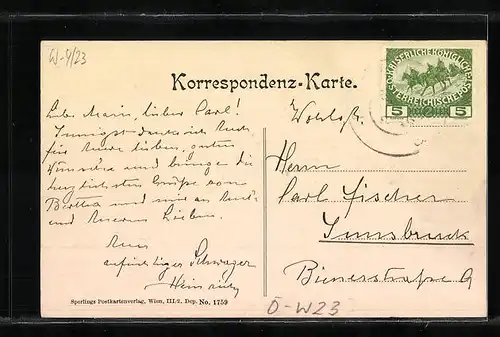 W-4/23
KAISERLICHE KÖNIGLICHE
ÖSTERREICHISCHE POST
5 5
Korrespondenz-Karte.
Liebe Marie, lieber Carl!
Innigst danke ich Euch
für Eure lieben, guten
Wünsche und bringe die
herzlichsten Grüße von
Bertha und mir an Euch
und Eueren Lieben.
Euer
aufrichtiger Schwager
Heinrich
Wohlg.
Herrn
Carl Fischer
Innsbruck
Bienerstraße 9
Sperlings Postkartenverlag, Wien, III/2, Dep. No. 1759
Ö-W23